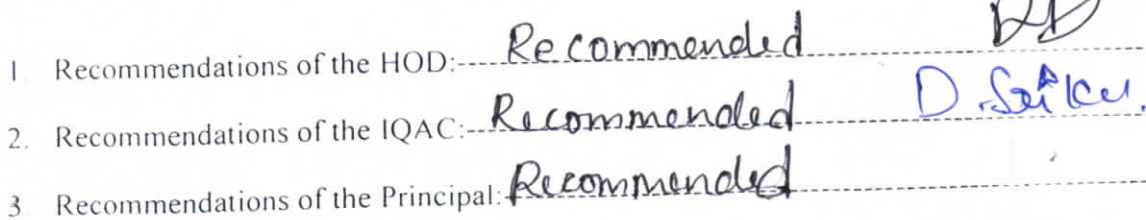 1. Recommendations of the HOD:---- Recommended
2. Recommendations of the IQAC:-- Recommended
3. Recommendations of the Principal: Recommended